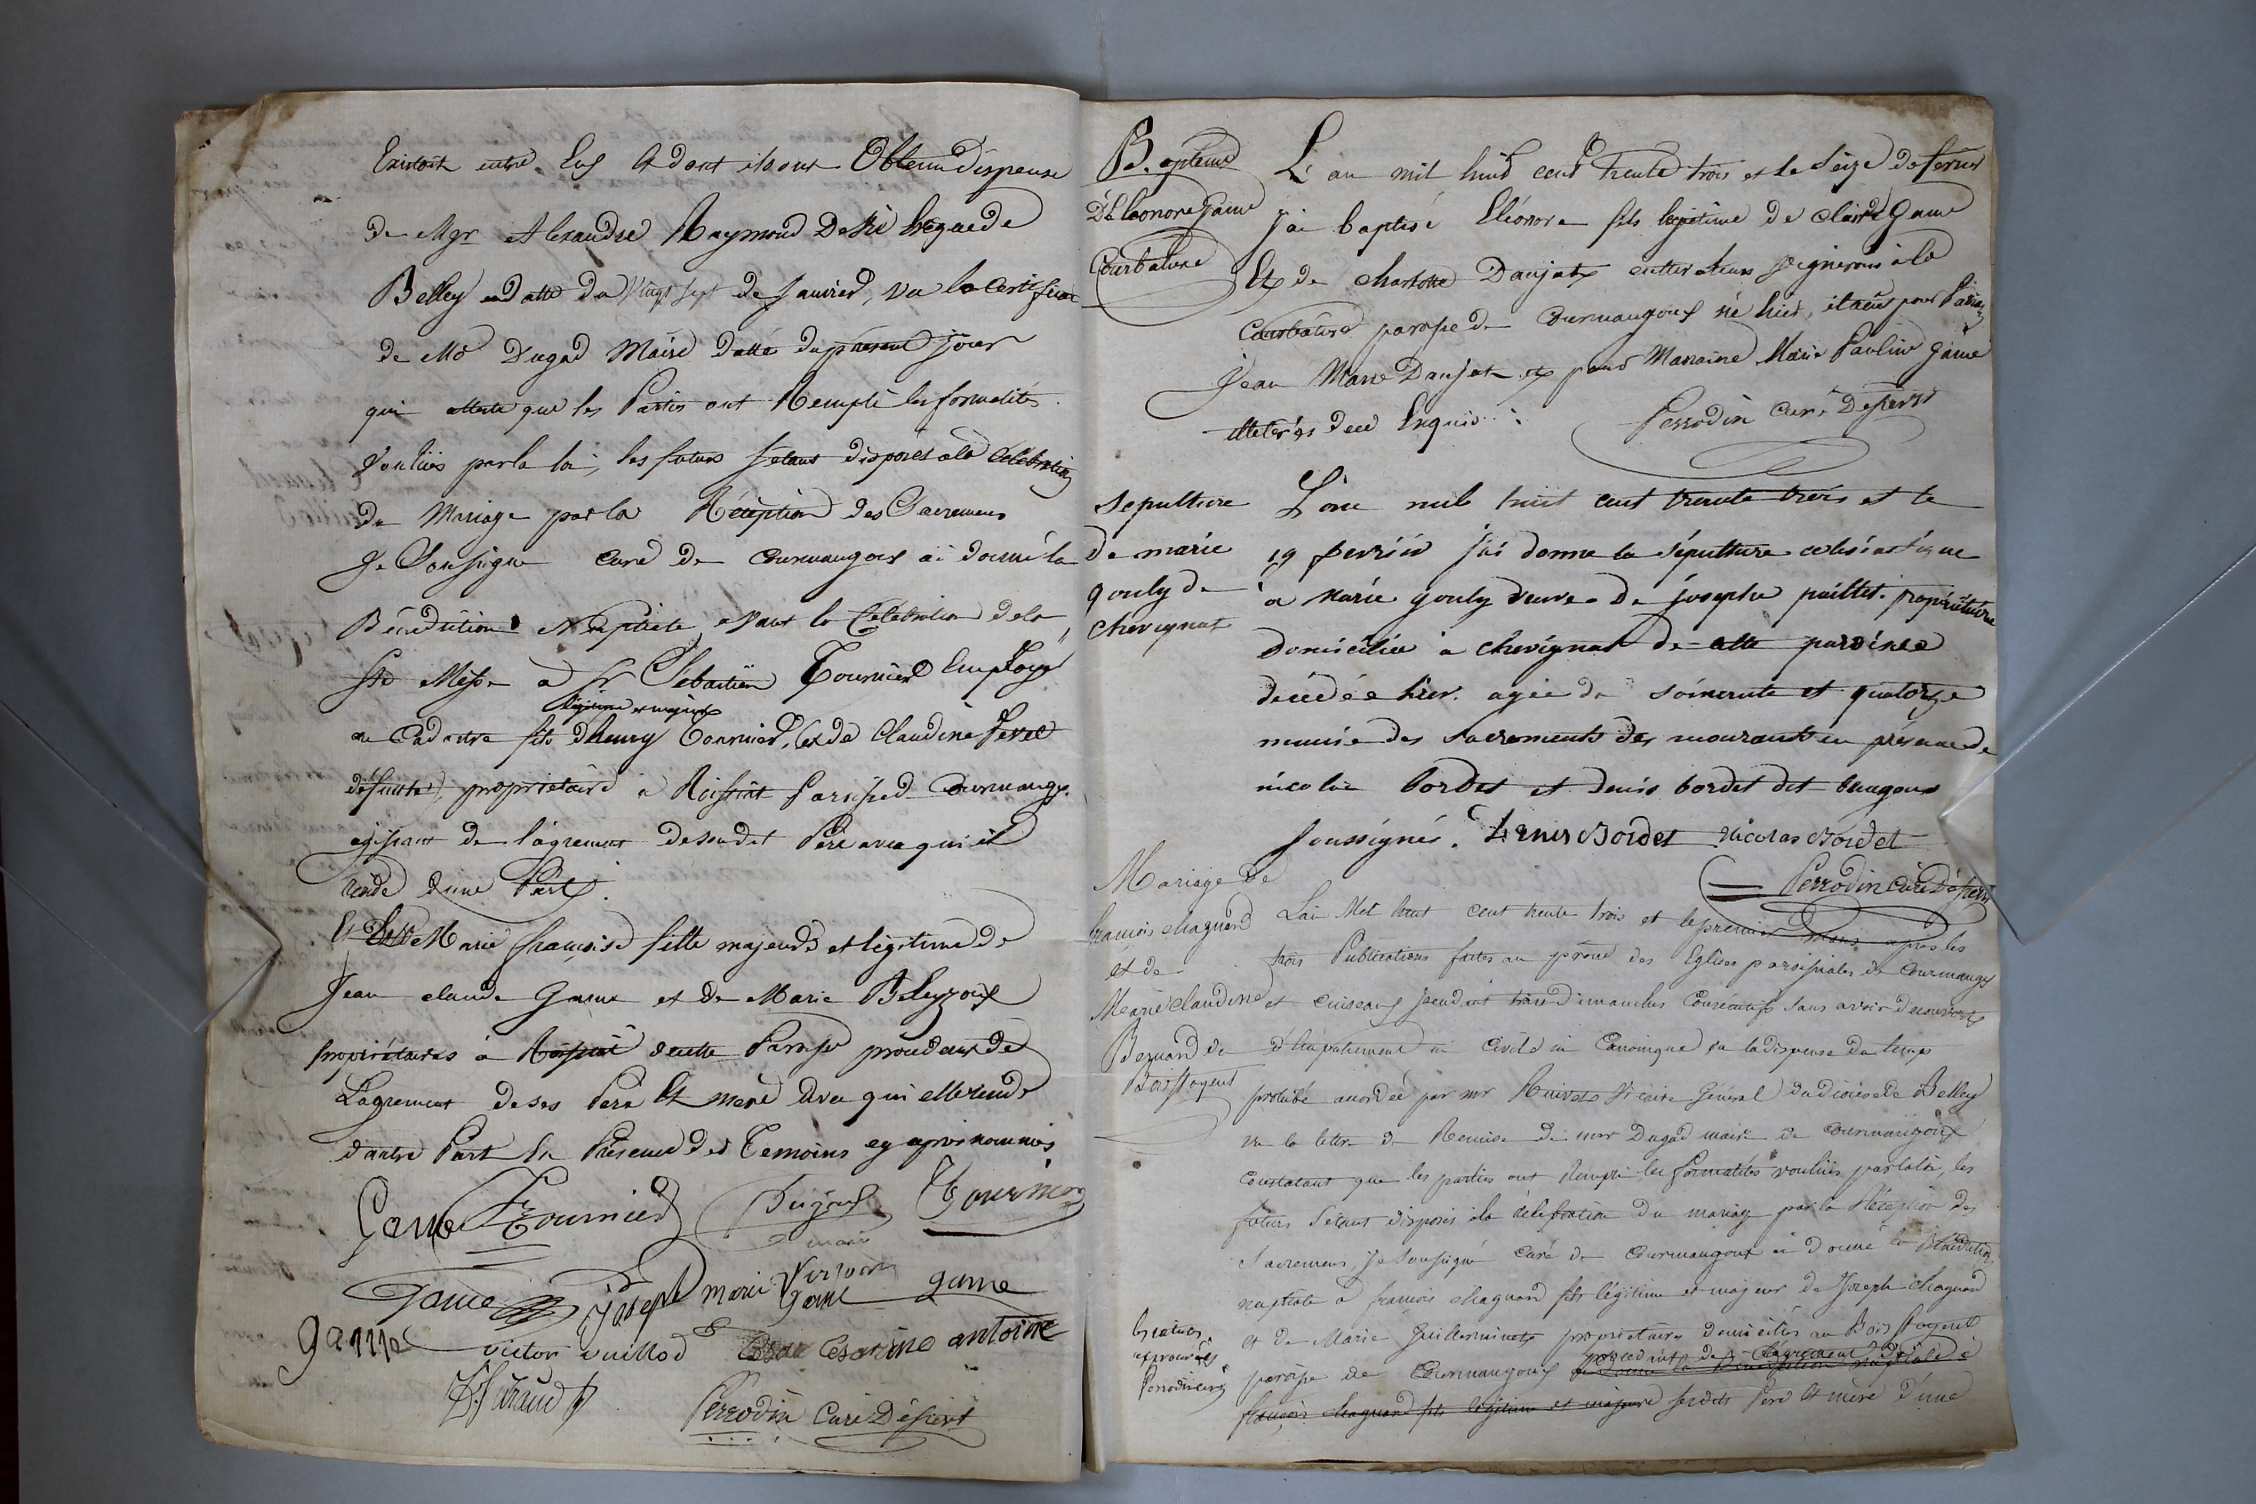 Existant entre Eux et dont ils ont Obtenu dispense
de Mgr Alexandre Raymond Devie Evêque de
Belley en datte du Vingt sept de Janvier, vu le Certificat
de Mr Dugad Maire datté du présent jour
qui atteste que les Parties ont Rempli les formalités
Voulües par la loi, les futurs s'etant disposés à la Célébration
du Mariage par la Réception des Sacremens
Je Soussigné Curé de Courmangoux ai donné la
Bénédiction Nuptiale avant la Célébration de la
Ste Messe a Sr Sébastien Tournier Employé
légitime et majeur
au Cadastre fils d'henry Tournier, et de Claudine
défunte, propriétaire à Roissiat Paroisse de Courmangx.
agissant de l'agrement de son dit Père avec qui il
réside d'une Part.
Et Dlle Marie françoise fille majeure et légitime de
Jean claude Game et de Marie Beleyzoux
propriétaires à Roissiat de cette Paroisse procédant de
L'agrement de ses Père Et mère Avec qui elle reside
d'autre Part En Présence des Temoins cy après nommés.
Game Tournier Tournier
maire
Game joseph marie game
game victor vuillod Cesarine antoine
Perrodin Curé Désservt
Baptème
D'Eléonore Game
Courbature
L'an mil huit cent trente trois et le Seize de fevrier
j'ai baptisé Eléonore fils légitime de claude Game
Et de charlotte Daujat cultivateurs vignerons à la
Courbature paroisse de Courmangoux né hier, étaient pour Parain
Jean Marie Daujat et pour Maraine Marie Pauline game
illeterés de ce Enquis.
Perrodin Curé Desservt
Sepulture
de marie
gouly de
chevignat
L'an mil huit cent trente trois et le
19 fevrier j'ai donne la sépulture eclesiastique
a marie gouly veuve de joseph paillet propriétaire
domiciliée à chevignat de cette paroisse
décédée hier agée de soixante et quatorze
munie des sacrements des mourants en présence de
nicolas bordet et denis bordet dit
soussignés. Denis Bordet nicolas Bordet
Perrodin Curé Desservt
Mariage de
françois chagnard
et de
Marie claudine
Bernard de
Bois foyent
L'an Mil huit cent trente trois et le premier Mars après les
trois Publications faites au prône des Eglises paroissiales de Courmangx
et Cuiseaux pendant trois Dimanches Consécutifs sans avoir decouvert
d'Empêchement ni Civil ni Canonique vu la dispense du temps
prohibé accordée par mr Ruivet Vicaire Général du diocèse de Belley
vu la letre de Remise de mr Dugad maire de Courmangoux
Constatant que les parties ont Rempli les formalités voulües par la loi, les
futurs s'etant disposés à la célébration du mariage par la Réception des
Sacremens, je Soussigné Curé de Courmangoux ai donné la Bénédiction
nuptiale à françois chagnard fils légitime et majeur de Joseph chagnard
et de Marie Guillerminet propriétaires domiciliés au Bois foyent
procedant de L'agrement de
paroisse de Courmangoux
françois chagnard fils légitime et majeur sesdits Père Et mère d'une
les ratures
approuvées
Perrodin curé